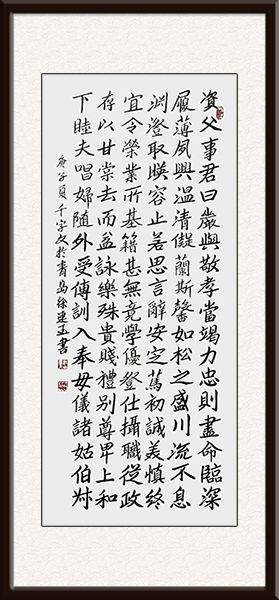 資父事君曰嚴與敬孝當竭力忠則盡命臨深
履薄夙興溫清儗蘭斯馨如松之盛川流不息
淵澄取暎容止若思言辭安定篤初誠美慎終
宜令榮業所基籍甚無竟學優登仕攝職從政
存以甘棠去而益詠樂殊貴賤禮別尊卑上和
下睦夫唱婦隨外受傅訓入奉母儀諸姑伯叔
庚子夏千字文於青島徐建玉書